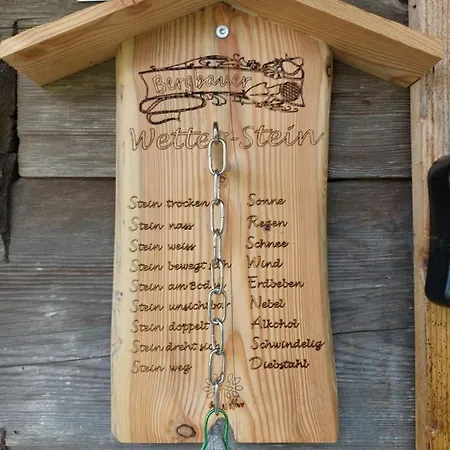 Bergbauer
Wetter-Stein
Stein trocken Sonne
Stein nass Regen
Stein weiss Schnee
Stein bewegt sich Wind
Stein am Boden Erdbeben
Stein unsichtbar Nebel
Stein doppelt Alkohol
Stein dreht sich Schwindelig
Stein weg Diebstahl